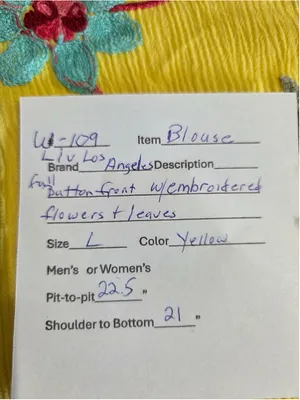 W-109 Item Blouse
Liv Los
Brand Angeles Description
full
button front w/embroidered
flowers + leaves
Size L Color Yellow
Men's or Women's
Pit-to-pit 22.5"
Shoulder to Bottom 21"